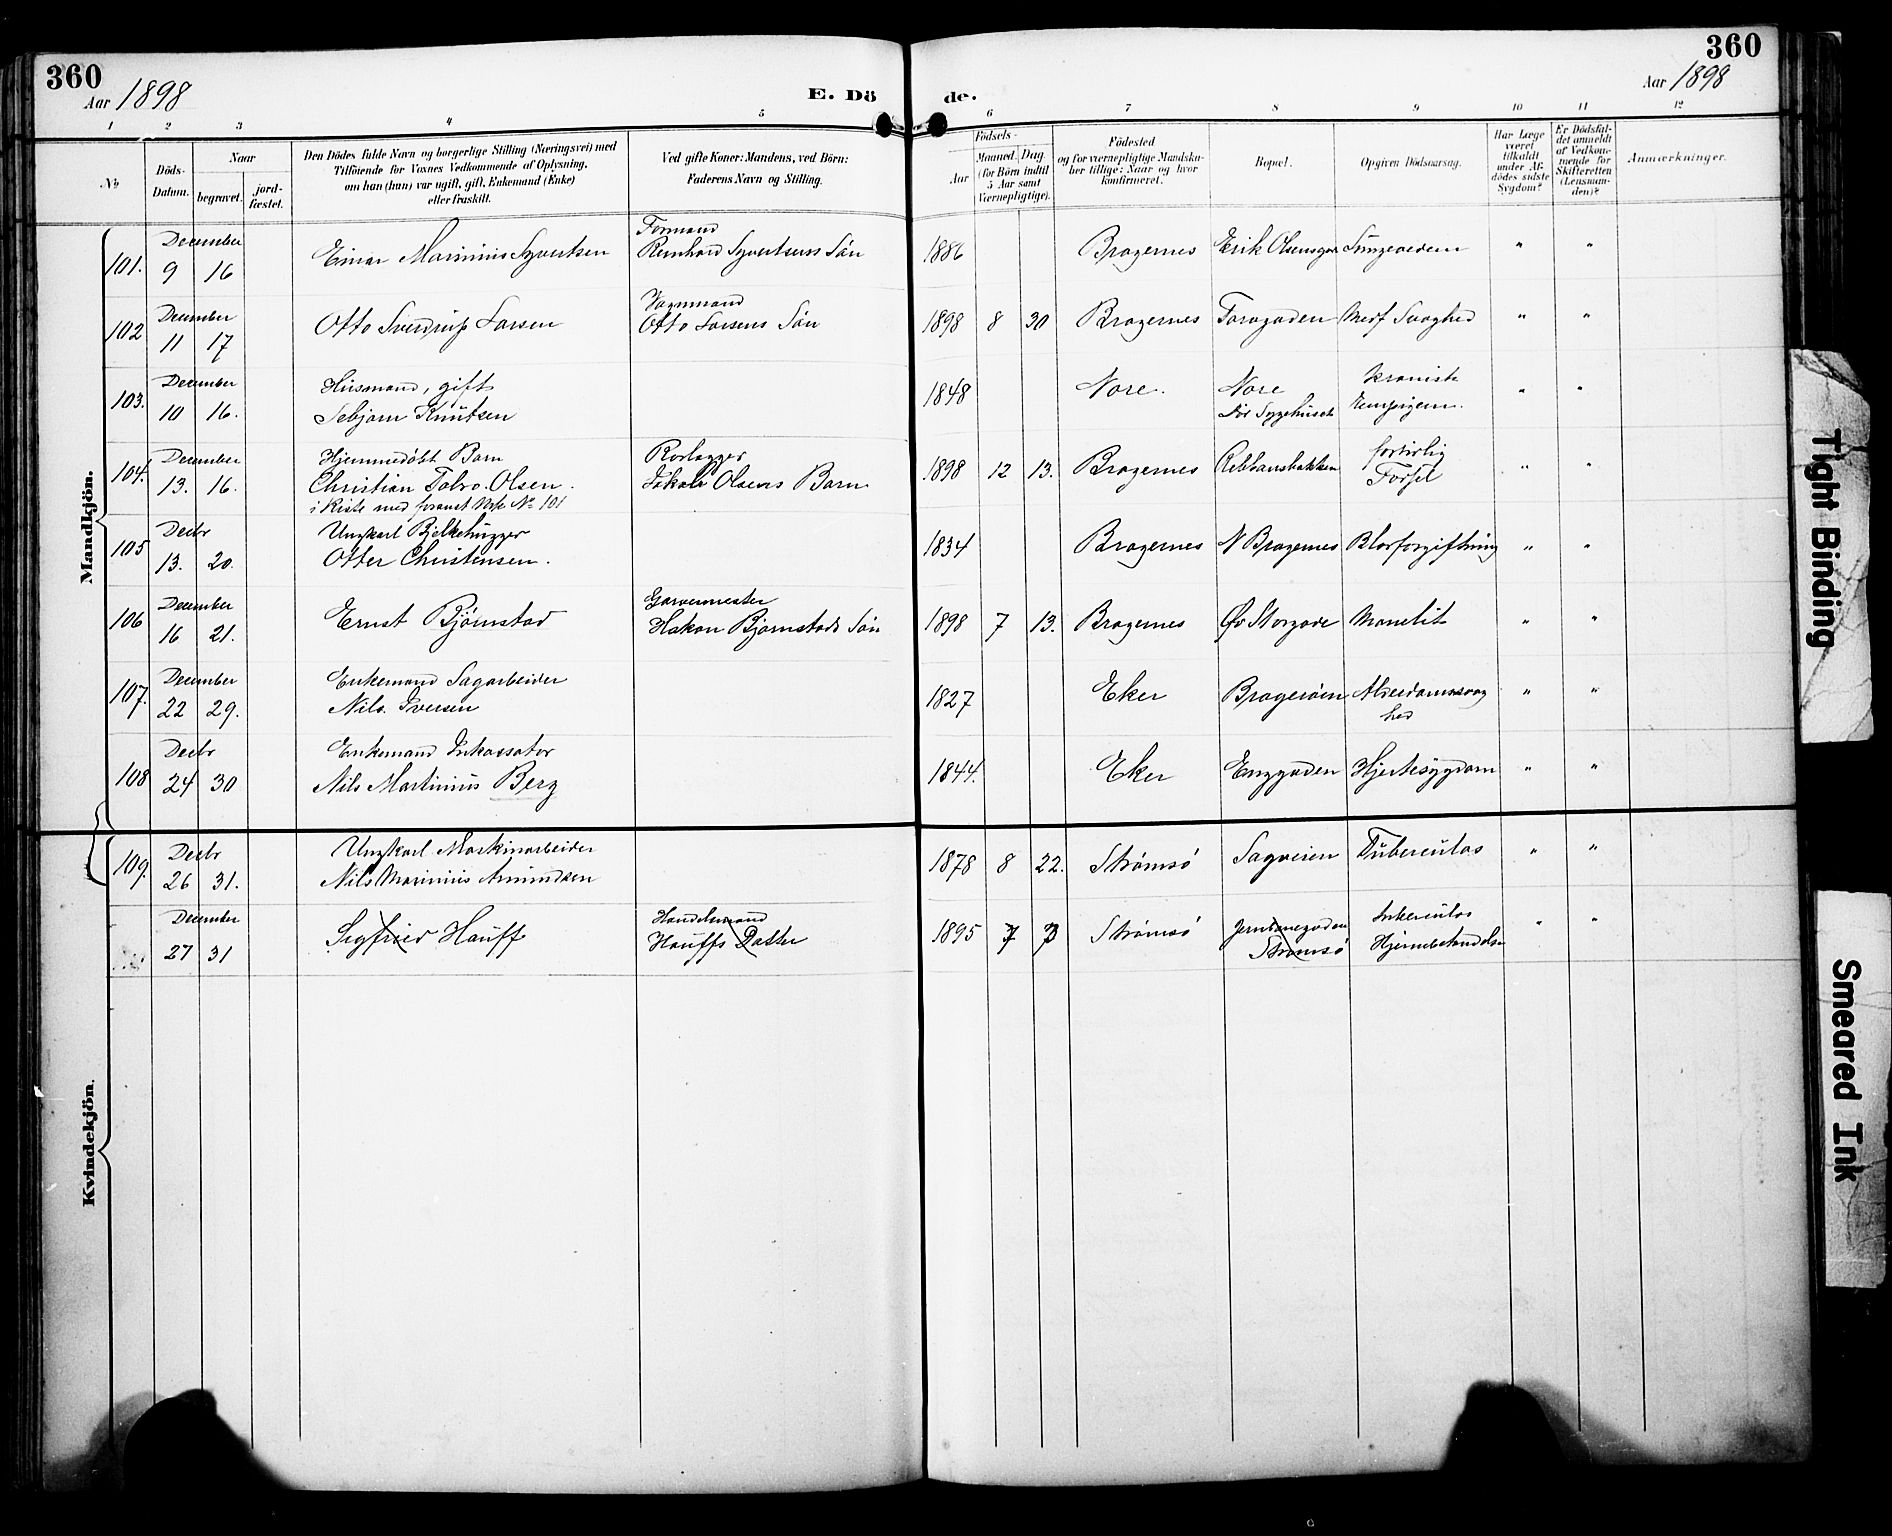 360
Aar 1898
E. Dö
de.
360
Aar 1898
1 2 3 4 5 6 7 8 9 10 11 12
No
Döds-
Datum.
Naar
begravet.
jord-
fæstet.
Den Dödes fulde Navn og borgerlige Stilling (Næringsvei) med
Tilföiende for Voxnes Vedkommende af Oplysning,
om han (hun) var ugift, gift, Enkemand (Enke)
eller fraskilt.
Ved gifte Koner: Mandens, ved Börn:
Faderens Navn og Stilling.
Födsels-
Aar
Maaned.
Dag.
(for Börn indtil
5 Aar samt
Værnepligtige).
Födested
og for værnepligtige Mandska-
ber tillige: Naar og hvor
konfirmeret.
Bopæl.
Opgiven Dödsaarsag.
Har Læge
været
tilkaldt
under Af-
dödes sidste
Sygdom?
Er Dödsfal-
det anmeldt
af Vedkom-
mende for
Skifteretten
(Lensman-
den)?
Anmærkninger.
Mandkjön.
101.
December
9 16
Einar Marinius Syvertsen
Formand
Reinhard Syvertsens Sön
1886
Bragernes
Erik Olsensgd
" "
102
December
11 17
Otto Sverdrup Larsen
Vognmand
Otto Larsens Sön
1898 8 30
Bragernes
Torvgaden
Medf Svaghed
" "
103.
December
10 16.
Husmand, gift
Sebjørn Knutsen
1848
Nore.
Nore
Sygehuset
kronisk
" "
104.
December
13. 16.
Hjemmedöbt Barn
Christian Olsen.
i Kiste med No 101
Rorlægger
Jakob Olsens Barn
1898 12 13.
Bragernes
Rebbansbakken
fortidlig
Födsel
" "
105
Decbr
13. 20.
Ungkarl Bjelkehugger
Otter Christensen.
1834
Bragernes
N Bragernes
Blodforgiftning
" "
106
December
16 21.
Ernst Bjørnstad
Garvermester
Hakon Bjørnstads Sön
1898 7 13.
Bragernes
Øv Storgade
" "
107.
December
22 29.
Enkemand Sagarbeider
Nils Iversen
1827
Eker
Bragerøen
Alderdomssvag
hed
" "
108
Decbr
24 30
Enkemand Inkassator
Nils Martinius Berg
1844.
Eker
Enggaden
Hjertesygdom
" "
109.
Decbr
26 31.
Ungkarl Maskinarbeider
Nils Marinius Amundsen
1878 8 22.
Strømsö
Sagveien
Tuberculos
" "
December
27 31
Sigfried Hauff
Handelsmand
Hauffs Datter
1895 7
Strømsö
Jernbanegaden
Strømsö
" "
Kvindekjön.
Tight Binding
Smeared Ink